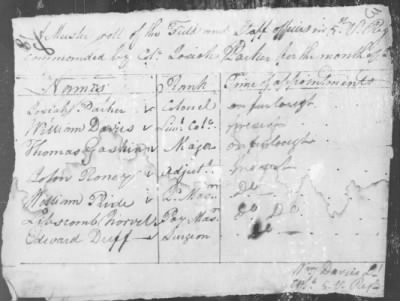 A Muster roll of the Field and Staff officers in 5th Va Reg
commanded by Colo. Josiah Parker for the month of
Names Rank Time of appointments
Josiah Parker Colonel on furlough
William Davies Lieut Colo. present
Thomas Gaskins Major on furlough
John Roney Adjutt. present
William Pride Qr. Mas. Do
Lipscomb Norvel Pay Mas. Do Do
Edward Duff Surgeon Do
Wm Davies
5. V. Regt